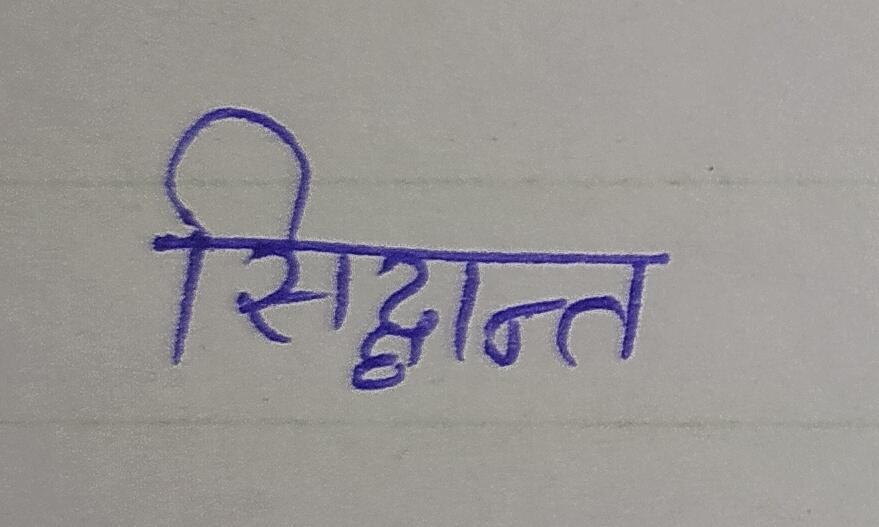 सिद्धान्त